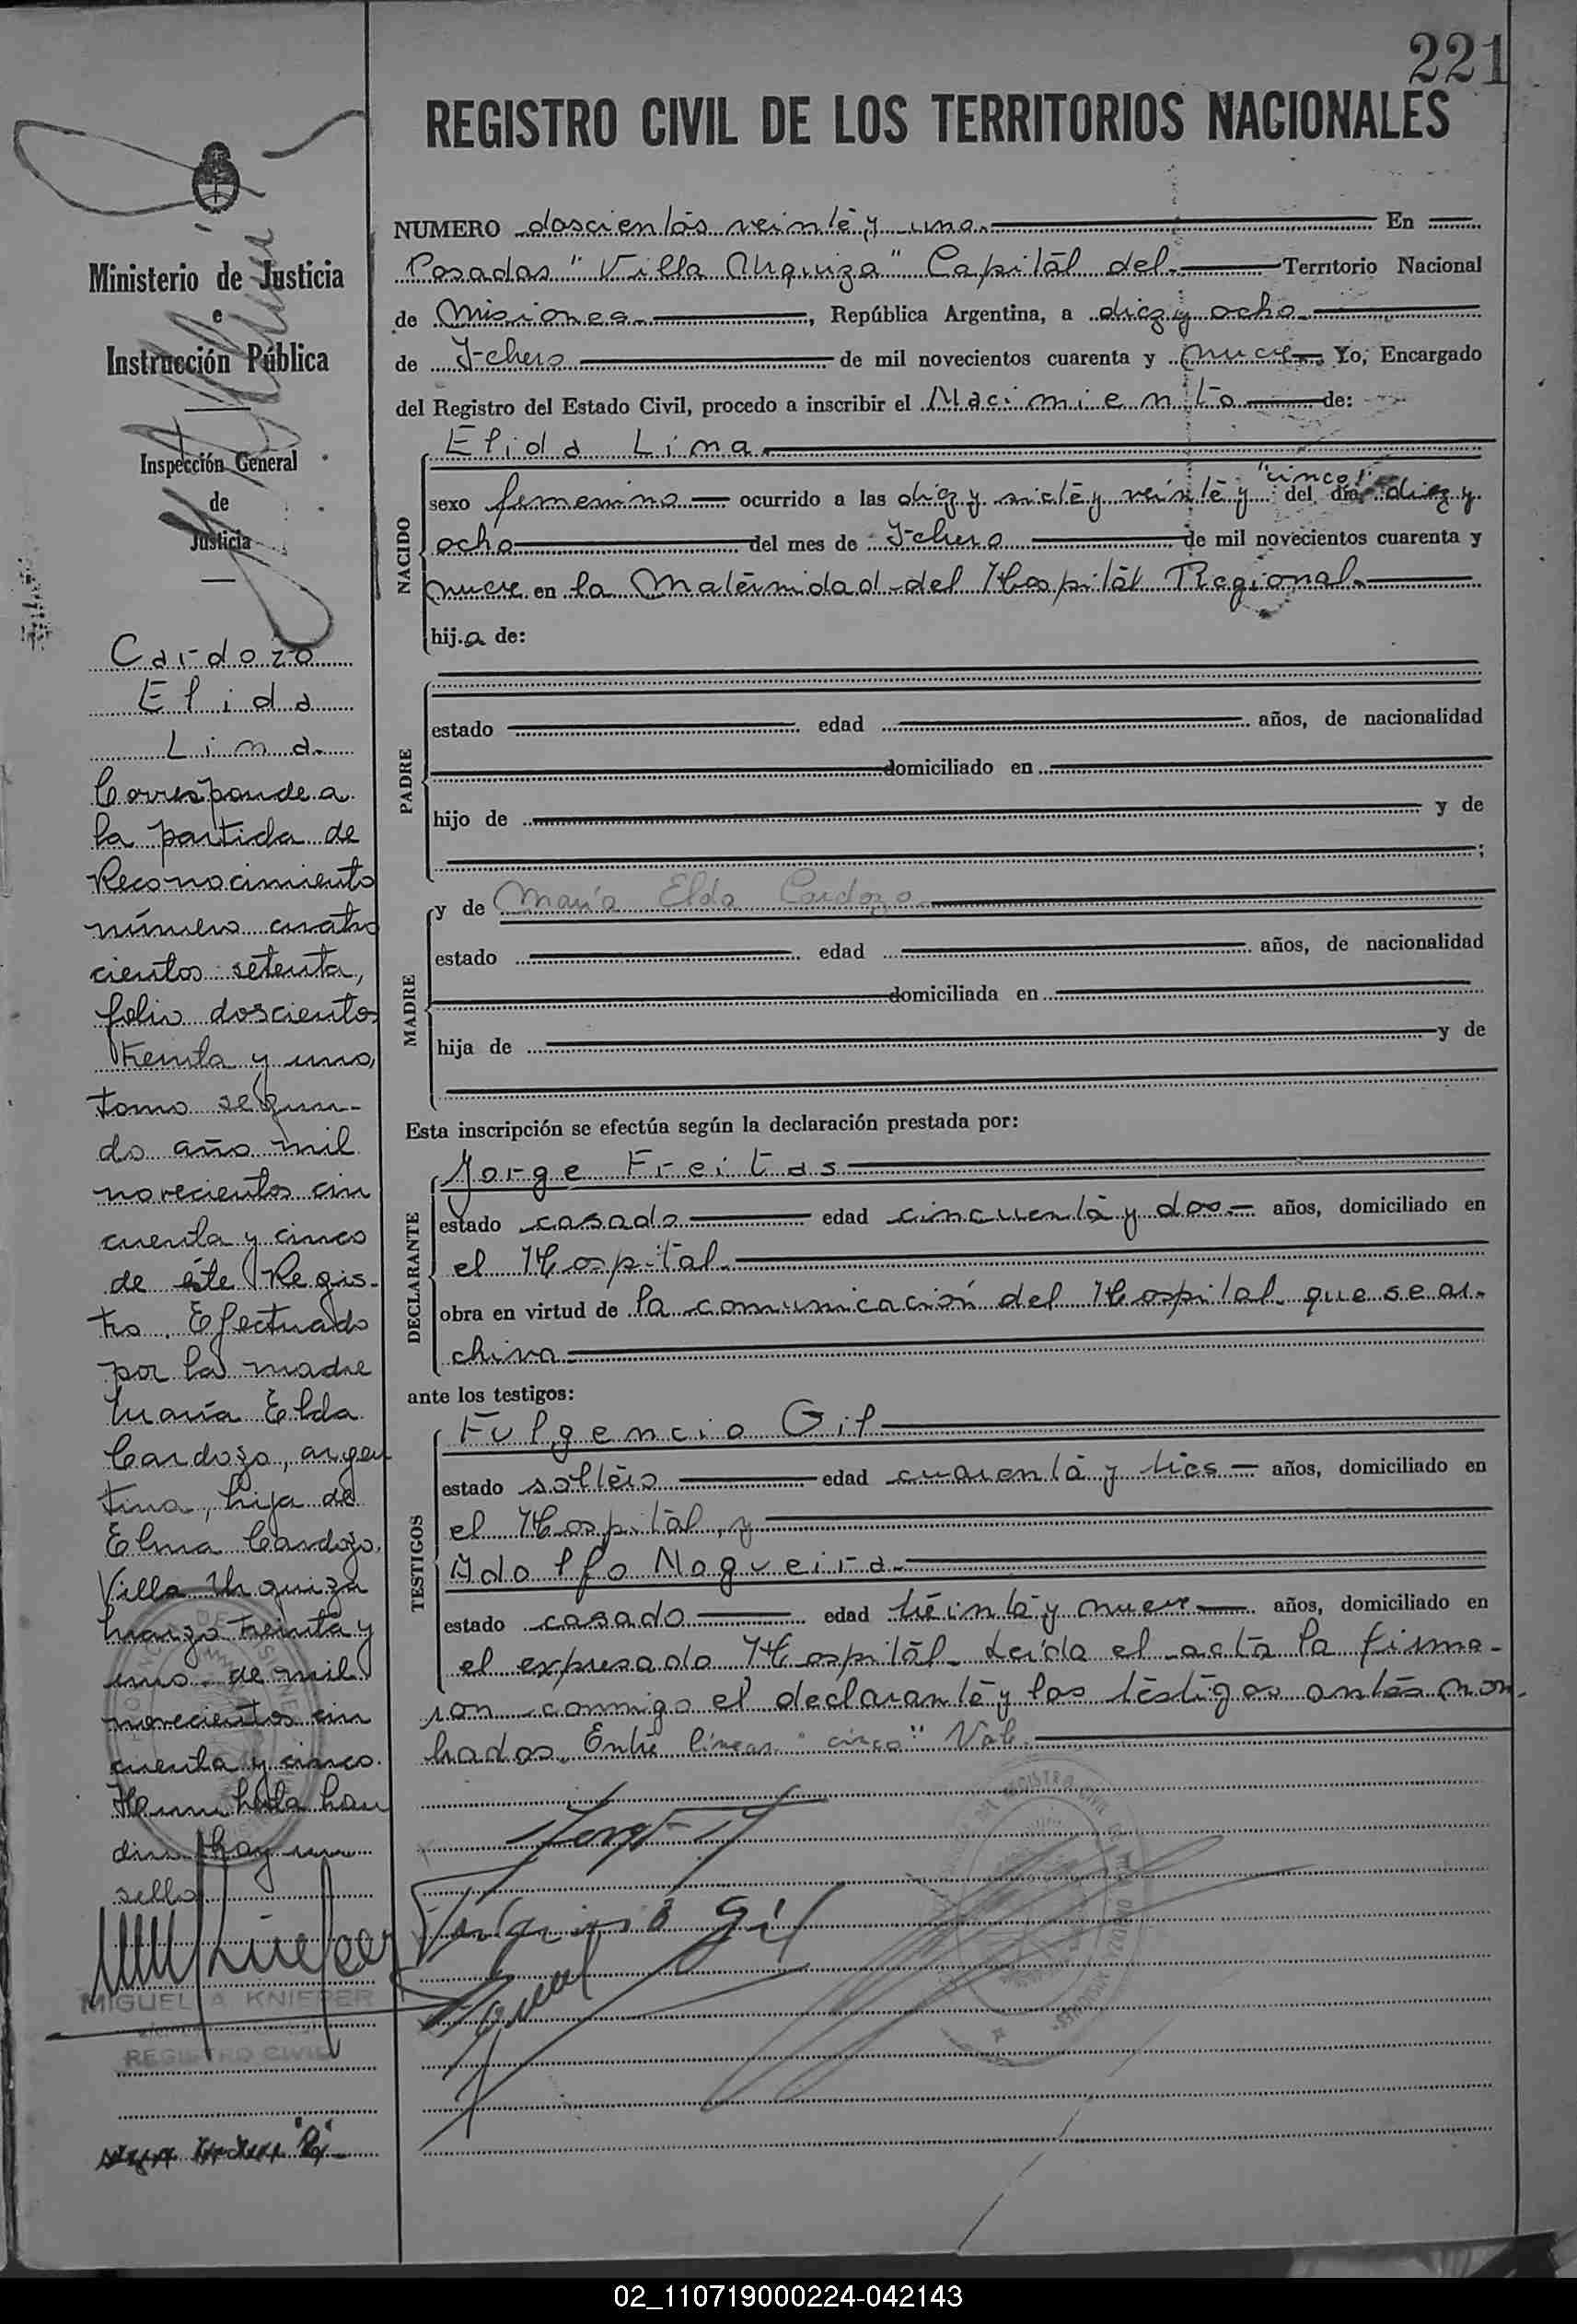 221
REGISTRO CIVIL DE LOS TERRITORIOS NACIONALES
Ministerio de Justicia
e
Instrucción Pública
Inspección General
de
Justicia
Cardozo
Elida
Lina.
Corresponde a
la partida de
Reconocimiento
número cuatro
cientos setenta,
folio doscientos
treinta y uno,
tomo segun-
do año mil
novecientos cin
cuenta y cinco
de éste Regis-
tro. Efectuado
por la madre
María Elda
Cardozo, argen
tina, hija de
Elma Cardozo.
Villa Urquiza
marzo treinta y
uno de mil
novecientos cin
cuenta y cinco.
hay un
sello
MIGUEL A. KNIEPER
REGISTRO CIVIL
NUMERO doscientos veinte y uno. En
Posadas "Villa Urquiza" Capital del Territorio Nacional
de Misiones, República Argentina, a diez y ocho
de Febrero de mil novecientos cuarenta y nueve Yo, Encargado
del Registro del Estado Civil, procedo a inscribir el Nacimiento de:
NACIDO
Elida Lina
sexo femenino ocurrido a las diez y siete y veinte y "cinco" del día diez y
ocho del mes de Febrero de mil novecientos cuarenta y
nueve en la Maternidad del Hospital Regional.
hija de:
PADRE
estado edad años, de nacionalidad
domiciliado en
hijo de y de
;
MADRE
y de María Elda Cardozo
estado edad años, de nacionalidad
domiciliada en
hija de y de
Esta inscripción se efectúa según la declaración prestada por:
DECLARANTE
Jorge Freitas
estado casado edad cincuenta y dos años, domiciliado en
el Hospital.
obra en virtud de la comunicación del Hospital que se ar-
chiva
ante los testigos:
TESTIGOS
Fulgencio Gil
estado soltero edad cuarenta y tres años, domiciliado en
el Hospital, y
Adolfo Nogueira
estado casado edad treinta y nueve años, domiciliado en
el expresado Hospital. Leída el acta la firma-
ron conmigo el declarante y los testigos antes nom-
brados. Entre líneas "cinco" Vale.
Gil
02_110719000224-042143